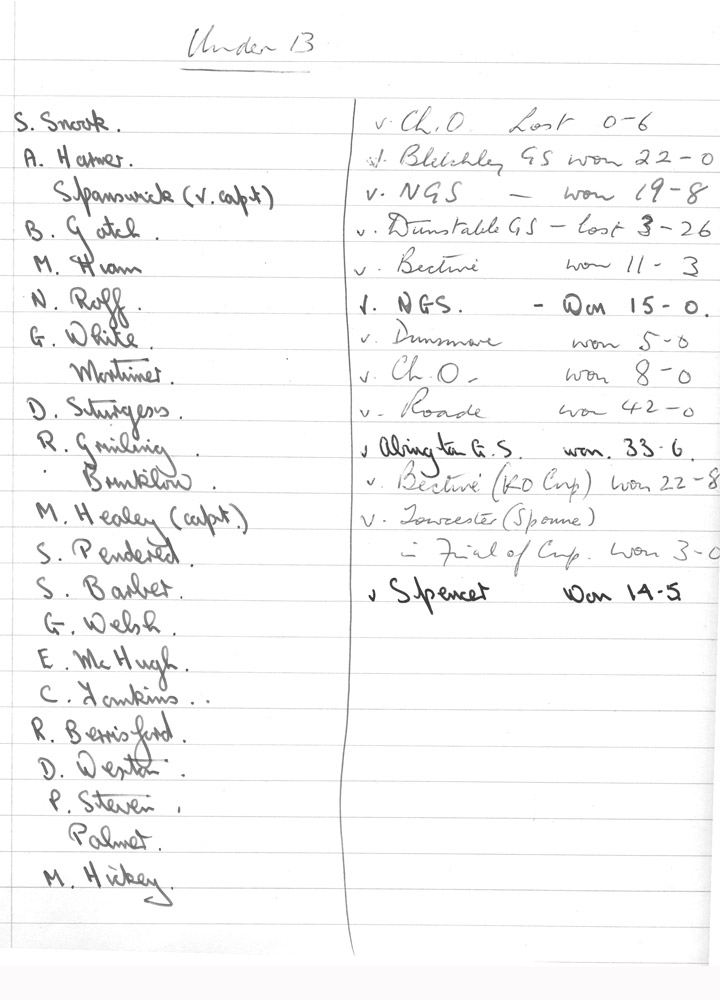 Under 13
S. Snook.
A. Hamer.
Spanswick (v. capt)
B. Gotch.
M. Hiam
N. Roff.
G. White.
Mortimer.
D. Sturgess.
R. Gmiling.
Brinklow.
M. Healey (capt.)
S. Pendered.
S. Barber.
G. Welsh.
E. McHugh.
C. Tomkins..
R. Berrisford.
D. Weston.
P. Steven.
Palmer.
M. Hickey.
v. Ch. O. Lost 0-6
v. Bletchley GS won 22-0
v. NGS — won 19-8
v. Dunstable GS - lost 3-26
v. Bective won 11-3
v. NGS. - Won 15-0.
v. Dunsmore won 5-0
v. Ch. O. won 8-0
v. Roade won 42-0
v Abington G.S. won. 33-6.
v. Bective (KO Cup) won 22-8
v. Towcester (Sponne)
in Final of Cup. won 3-0
v Spencer Won 14-5